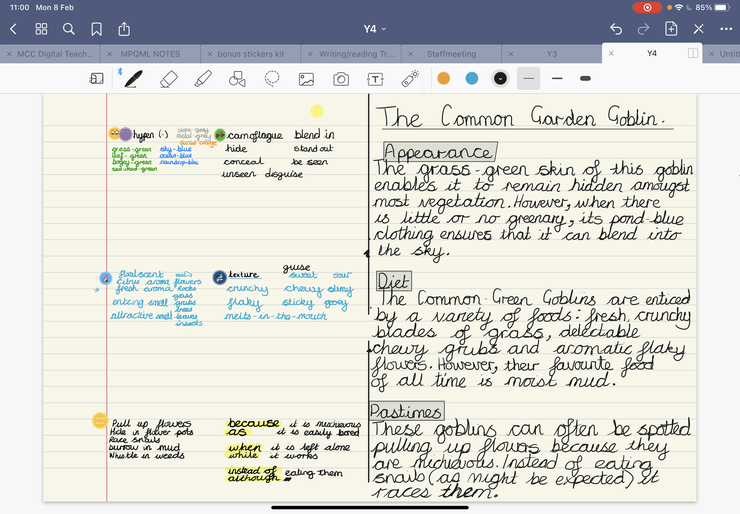 11:00 Mon 8 Feb
85%
Y4
MCC Digital Teach...
MPQML NOTES
bonus stickers kit
Writing/reading Tr...
Staffmeeting
Y3
Y4
Untit
The Common Garden Goblin.
hypen (-)
metal-grey
grass-green
sky-blue
leaf-green
ocean-blue
bogey-green
raindrop-blue
seaweed-green
camoflague blend in
hide stand out
conceal be seen
unseen disguise
guise
Appearance
The grass-green skin of this goblin
enables it to remain hidden amongst
most vegetation. However, when there
is little or no greenery, its pond-blue
clothing ensures that it can blend into
the sky.
floalscent
citrus aroma flowers
fresh aroma rocks
grass
enticing smell grubs
trees
attractive smell leaves
insects
texture sweet sour
crunchy chewy slimy
flaky sticky gooy
melts-in-the-mouth
Diet
The Common Green Goblins are enticed
by a variety of foods: fresh, crunchy
blades of grass, delectable
chewy grubs and aromatic flaky
flowers. However, their favourite food
of all time is moist mud.
Pull up flowers
Hide in flower pots
Race snails
burrow in mud
Whistle in weeds
because it is mischievous
as it is easily bored
when it is left alone
while it works
instead of eating them
although
Pastimes
These goblins can often be spotted
pulling up flowers because they
are michievous. Instead of eating
snails (as might be expected) it
races them.